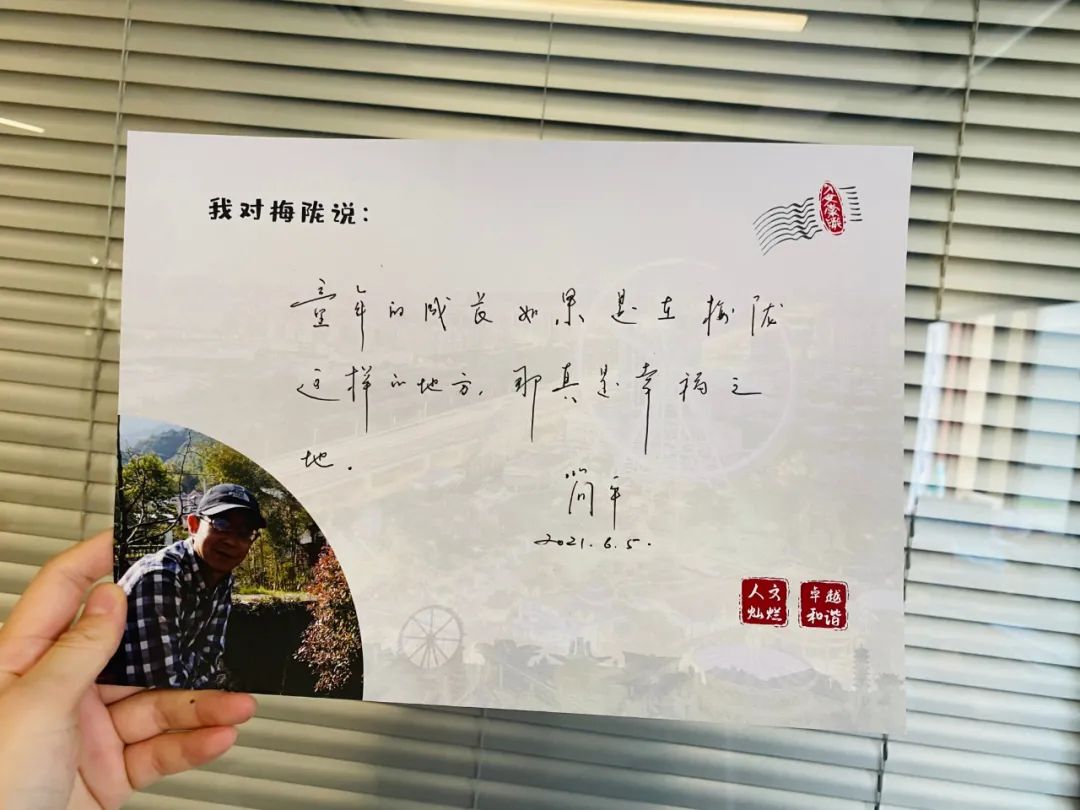 我对梅陇说：
童年的成长如果是在梅陇
这样的地方，那真是幸福之
地.
简平
2021.6.5.
人文
灿烂
卓越
和谐